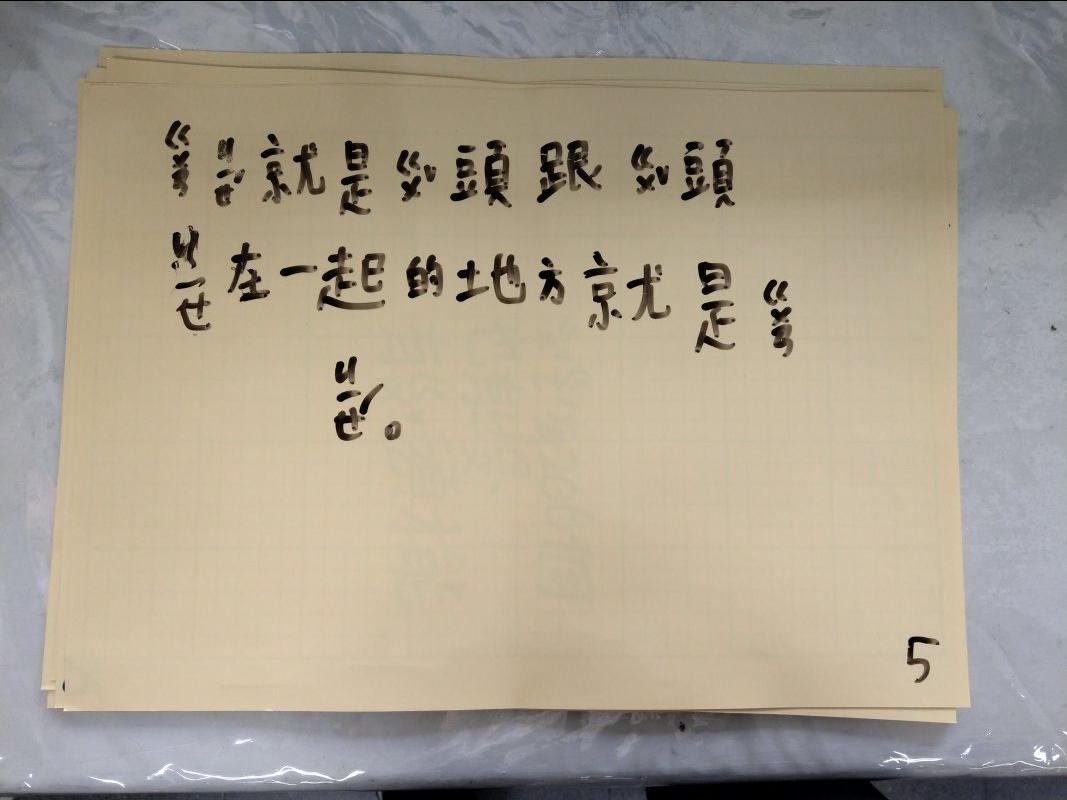 ㄍㄨㄢㄐㄧㄝˊ就是ㄍㄨˇ頭跟ㄍㄨˇ頭
ㄐㄧㄝ在一起的地方就是ㄍㄨㄢ
ㄐㄧㄝˊ。
5